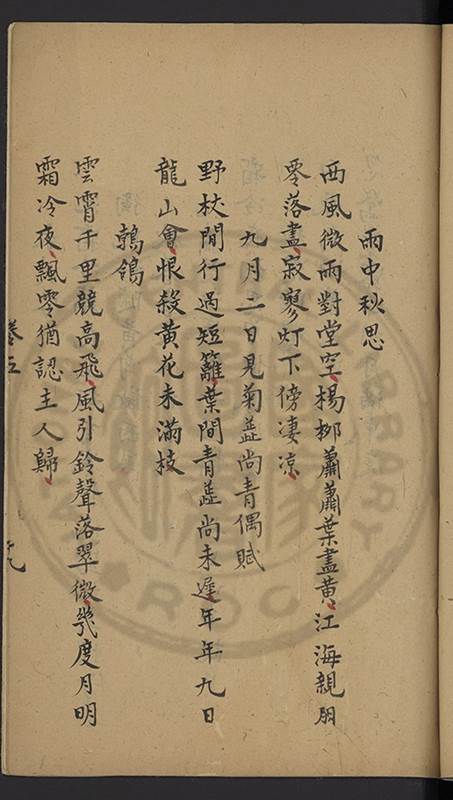 雨中秋思
西風微雨對堂空楊柳蕭蕭葉盡黃江海親朋
零落盡寂寥灯下傍凄凉
九月二日見菊蕋尚青偶賦
野杖閒行過短籬葉間青蕋尚未遲年年九日
龍山會恨殺黃花未滿枝
鶺鴒
雲霄千里競高飛風引鈴聲落翠微幾度月明
霜冷夜飄零猶認主人歸
卷五